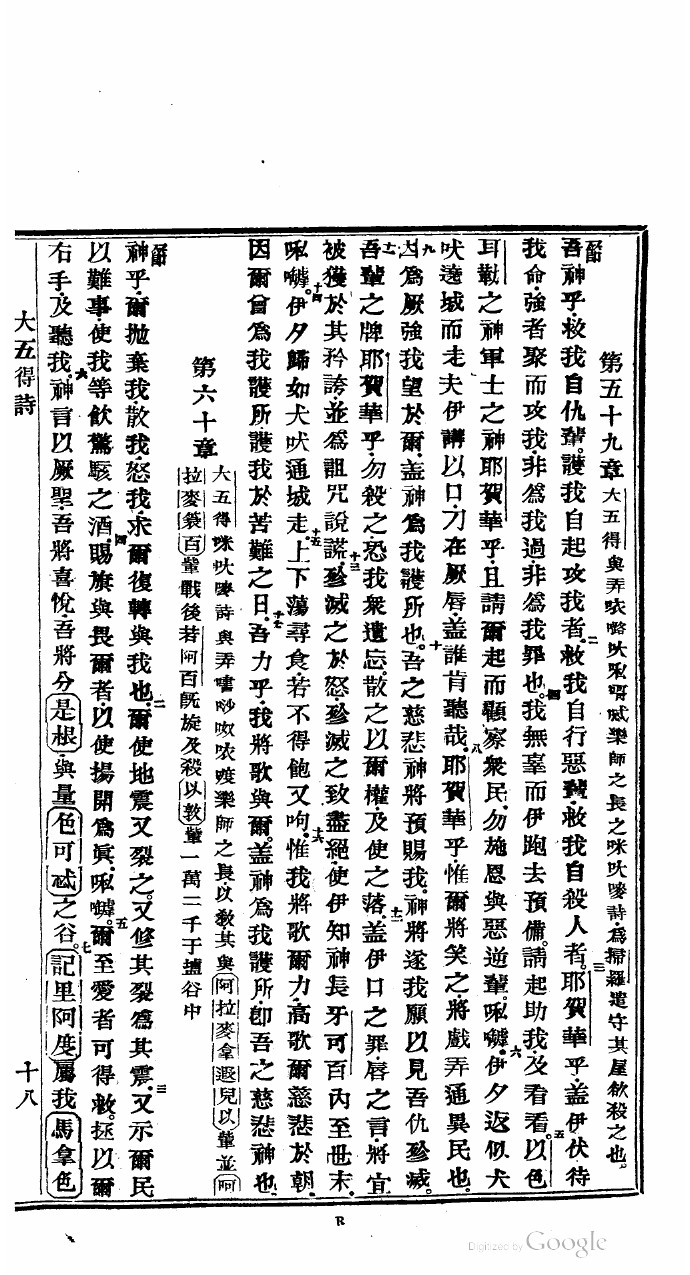 第五十九章 大五得與弄㕧㗉㕭唎㗖㖅樂師之長之咪㕭嘜詩·爲掃羅遣守其屋欲殺之也。
吾神乎·救我自仇輩。護我自起攻我者·二救我自行惡輩·救我自殺人者。三耶賀華乎·蓋伊伏待
我命·強者聚而攻我·非爲我過·非爲我罪也。四我無辜而伊跑去預備。請起助我·及看看。五以色
耳㘓之神·軍士之神·耶賀華乎·且請爾起而顧察衆民·勿施恩與惡逆輩。唎㘔。六伊夕返似犬
吠遶城而走。夫伊講以口·刀在厥唇·蓋誰肯聽哉。八耶賀華乎·惟爾將笑之·將戲弄通異民也。
九因爲厥強·我望於爾·蓋神爲我護所也。十吾之慈悲神將預賜我。神將遂我願以見吾仇殄滅。
十一吾輩之牌耶賀華乎·勿殺之·恐我衆遺忘。散之以爾權·及使之落。十二蓋伊口之罪·唇之言·將宜
被獲於其矜誇·並爲詛咒說謊。十三殄滅之於怒·殄滅之致盡絕·使伊知神長牙可百內至世末。
唎㘔。十四伊夕歸如犬吠通城走。十五上下蕩尋食·若不得飽又呴。十六惟我將歌爾力·高歌爾慈悲於朝·
因爾曾爲我護所·護我於苦難之日。十七吾力乎·我將歌與爾。蓋神爲我護所·卽吾之慈悲神也。
第六十章 大五得咪㕭嘜詩與弄𡀔唦㕭㕧唆樂師之長·以敎·其與阿拉麥拿遐兒以輩並阿
拉麥鎖百輩戰後·若阿百旣旋及殺以敦輩一萬二千于鹽谷中
神乎·爾拋棄我·散我·怒我·求爾復轉與我也。二爾使地震·又裂之。又修其裂·爲其震。三又示爾民
以難事·使我等飲驚駭之酒。四賜旗與畏爾者·以使揚開爲眞。唎㘔。五爾至愛者可得救。拯以爾
右手·及聽我。六神言以厥聖·吾將喜悅·吾將分是根·與量色可㖅之谷。七記里阿度屬我·馬拿色
大五得詩
十八
R
Digitized by Google